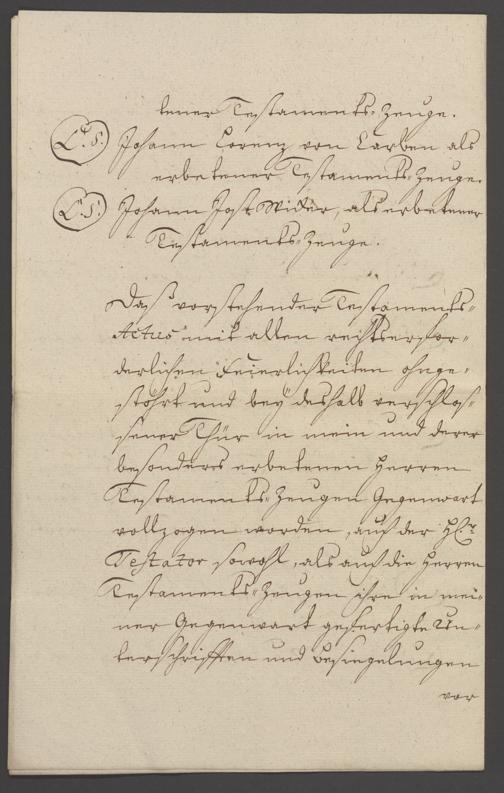 tener Testaments-Zeuge.
L.S. Johann Lorenz von Carben als
erbetener Testaments-Zeuge.
L.S. Johann Jost Wider, als erbetener
Testaments-Zeuge.
Daß vorstehender Testaments-
Actus mit allen rechtserfor-
derlichen Feierlichkeiten ohnge-
stöhrt und bey deshalb verschlos-
sener Thür in mein und derer
besonders erbetenen Herren
Testaments-Zeugen Gegenwart
vollzogen worden, auch der H.r
Testator sowohl, als auch die Herren
Testaments-Zeugen ihre in mei-
ner Gegenwart gefertigte Un-
terschrifften und Besiegelungen
vor